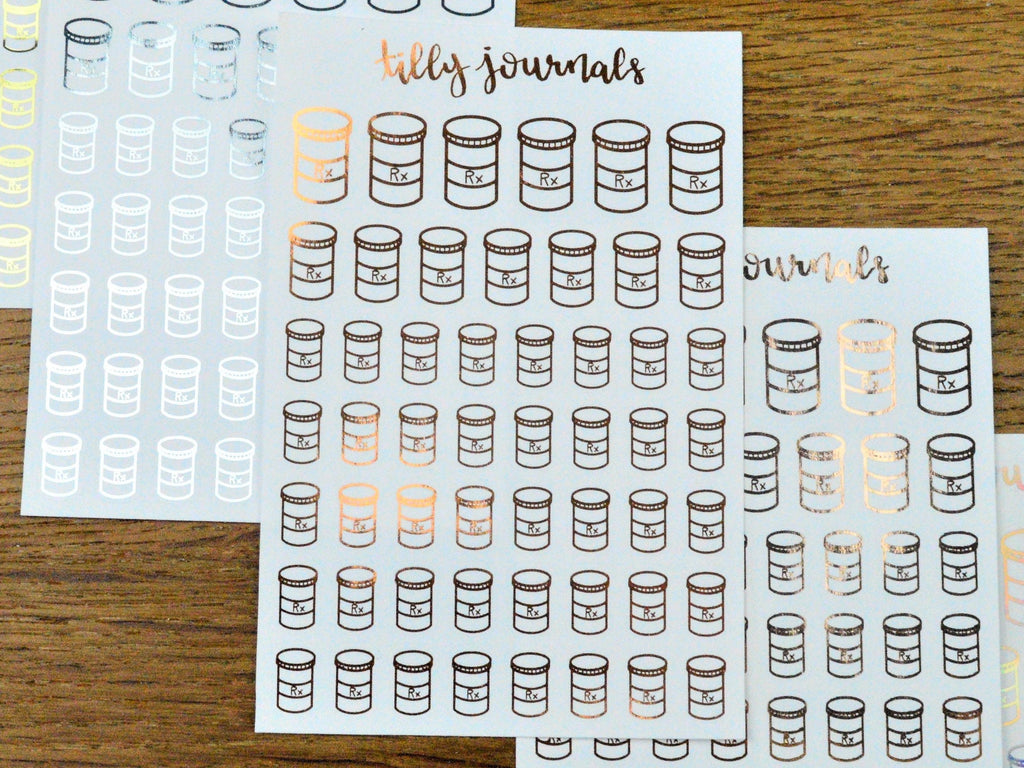 tilly journals
Rx Rx Rx Rx Rx Rx
Rx Rx Rx Rx Rx Rx Rx
Rx Rx Rx Rx Rx Rx Rx Rx
Rx Rx Rx Rx Rx Rx Rx Rx
Rx Rx Rx Rx Rx Rx Rx Rx
Rx Rx Rx Rx Rx Rx Rx Rx
Rx Rx Rx Rx Rx Rx Rx Rx
Rx Rx Rx
Rx Rx Rx Rx
Rx Rx Rx Rx
Rx Rx Rx Rx
Rx Rx Rx Rx
Rx Rx Rx Rx
journals
Rx Rx Rx
Rx Rx Rx Rx
Rx Rx Rx Rx
Rx Rx Rx Rx
Rx Rx Rx Rx